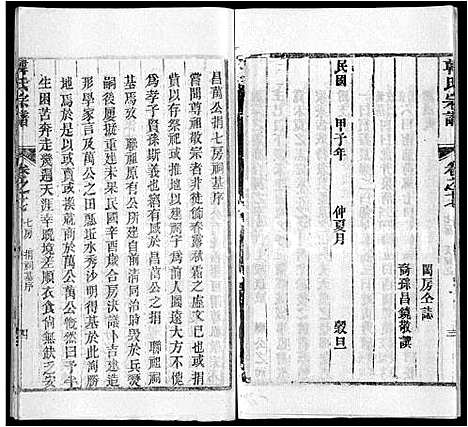 韓氏宗譜
卷之十七
三
闔房仝誌
裔孫昌鏡敬譔
民國 甲子年 仲夏月 穀旦
昌萬公捐七房祠基序
嘗聞尊祖敬宗者非徒飾春露秋霜之虛文已也或捐
貲以存祭祀或推地以建祠宇為前人圖遠大方不愧
為孝子賢孫斯義也昌萬公之捐 聯祀祠
基焉故 聯祀原有公所建自同治毀於兵燹
嗣後屢擬重建未果民國辛酉歲合房決議卜吉建造
形學家言及萬公之田飄近水秀沙明得基於此海勝
地焉於是以其事商於萬公萬公慨然曰余一
生困苦奔走幾遍天涯幸晚境差順衣食尚無缺乏安
韓氏宗譜
卷之十七
七房 捐祠基序
四